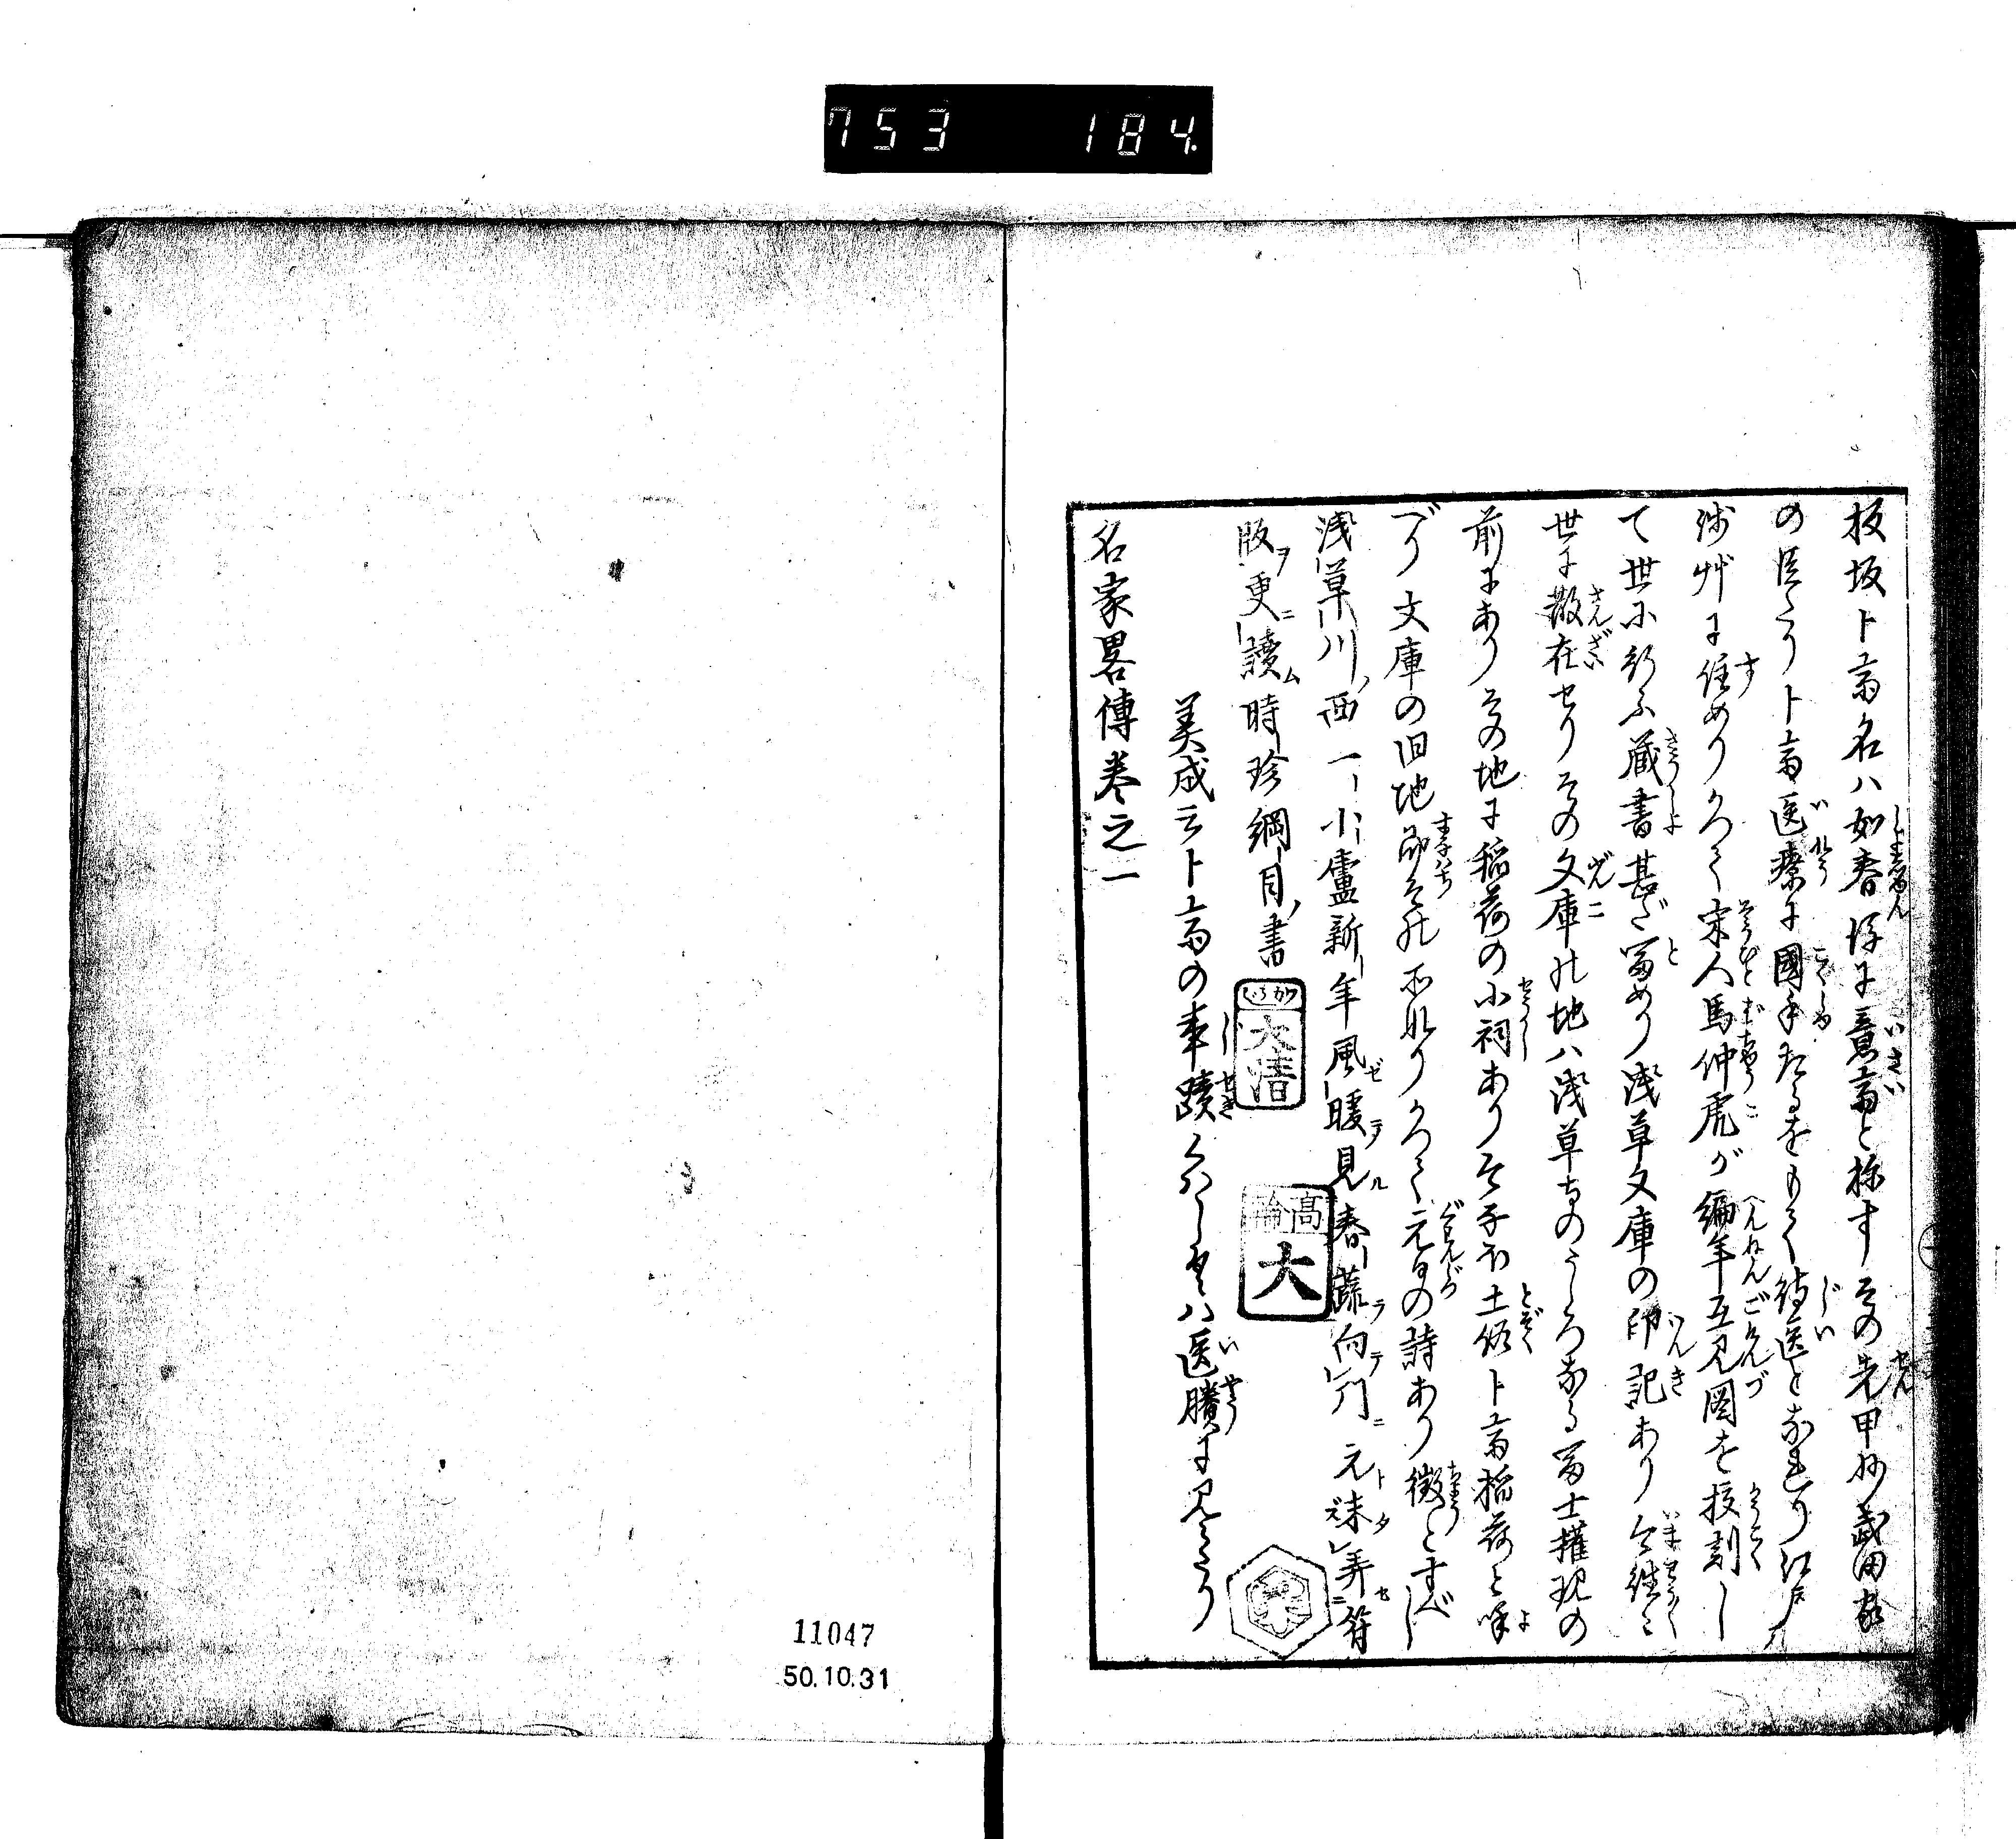 753 184.
板坂卜斎名ハ如春後に意斎と称すその先甲州武田家
の医たり卜斎医療に國手たるをもて侍医となれり江戸
浅艸に住めりかつて宋人馬仲虎が編年互見図を校刻し
て世に行ふ蔵書甚だ冨めり浅草文庫の印記あり今往々
世に散在せりその文庫の地ハ浅草寺のうしろなる冨士権現の
前にありその地に稲荷の小祠ありそを土俗卜斎稲荷と呼
べり文庫の旧地即その所なりかつて元旦の詩あり徴とすべし
浅草川西一小盧新年風暖見春蔬向門元未弄符
版更讀時珍綱目書
美成云卜斎の事蹟くハしくハ医賸に見えたり
名家畧傳巻之一
大清
高
大
11047
50.10.31